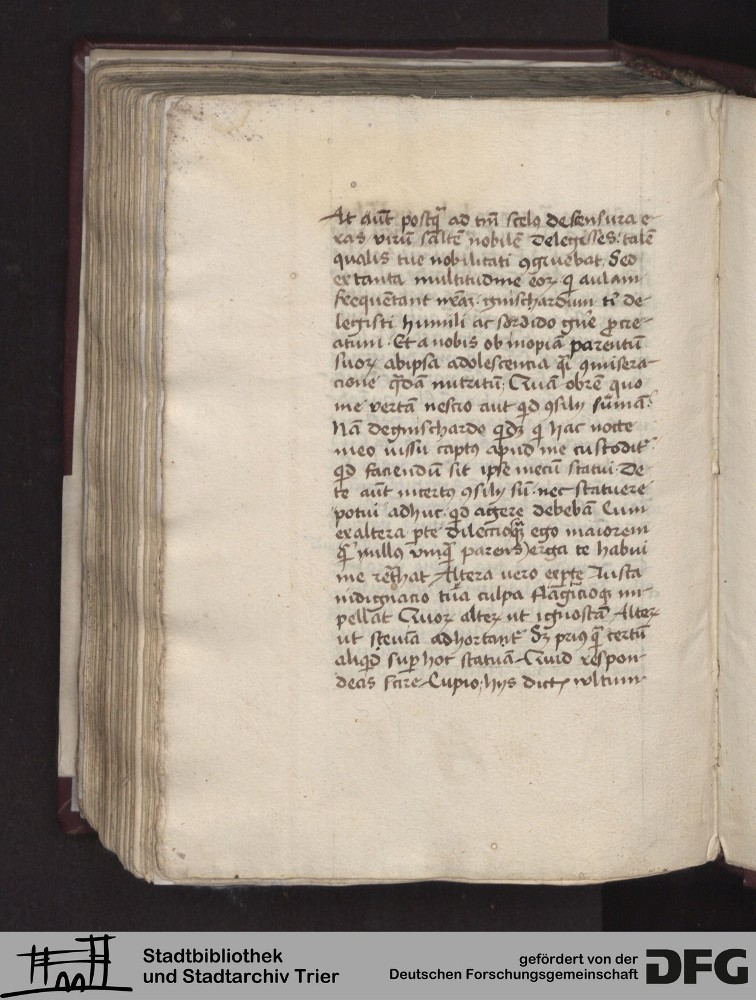 At aut̄ postq̄ ad tm̄ scelꝯ descensura e-
ras virū saltē nobilē delegisses: talē
qualis tue nobilitati ꝯgruebat. Sed
ex tanta multitudine eoꝝ q aulam
frequētant nr̄aꝫ. gwischardum ti᷑ de-
legisti humili ac sordido gn̄e ꝓcre-
atum. Et a nobis ob inopiā parentū
suoꝝ ab ipsa adolescencia q̄i ꝯmisera-
cione q̄dā nutritū; Quā obrē quo
me vertā nescio aut qd ꝯsilij sūmā:
Nā de gwischardo qdꝫ q hac nocte
meo iussu captꝯ apud me custodit᷑
qd faciendū sit ipse mecū statui. De
te aūt incertꝯ ꝯsilij sū. nec statuere
potui adhuc. qd agere debebā Cum
ex altera ꝑte dilectioqꝫ ego maiorem
q̄ nullꝯ vnq̄ parens erga te habui
me ret᷑hat Altera uero ex ꝑte Iusta
indignacio tua culpa flāgicioqꝫ im-
pellat Quoꝝ alteꝝ ut ignoscā Alteꝝ
ut seuiā adhortant᷑ Sꝫ priꝯ q̄ certū
aliqd suꝑ hoc statuā. Quid respon-
deas scire Cupio; hijs dict̄ vultum
Stadtbibliothek
und Stadtarchiv Trier
gefördert von der
Deutschen Forschungsgemeinschaft
DFG